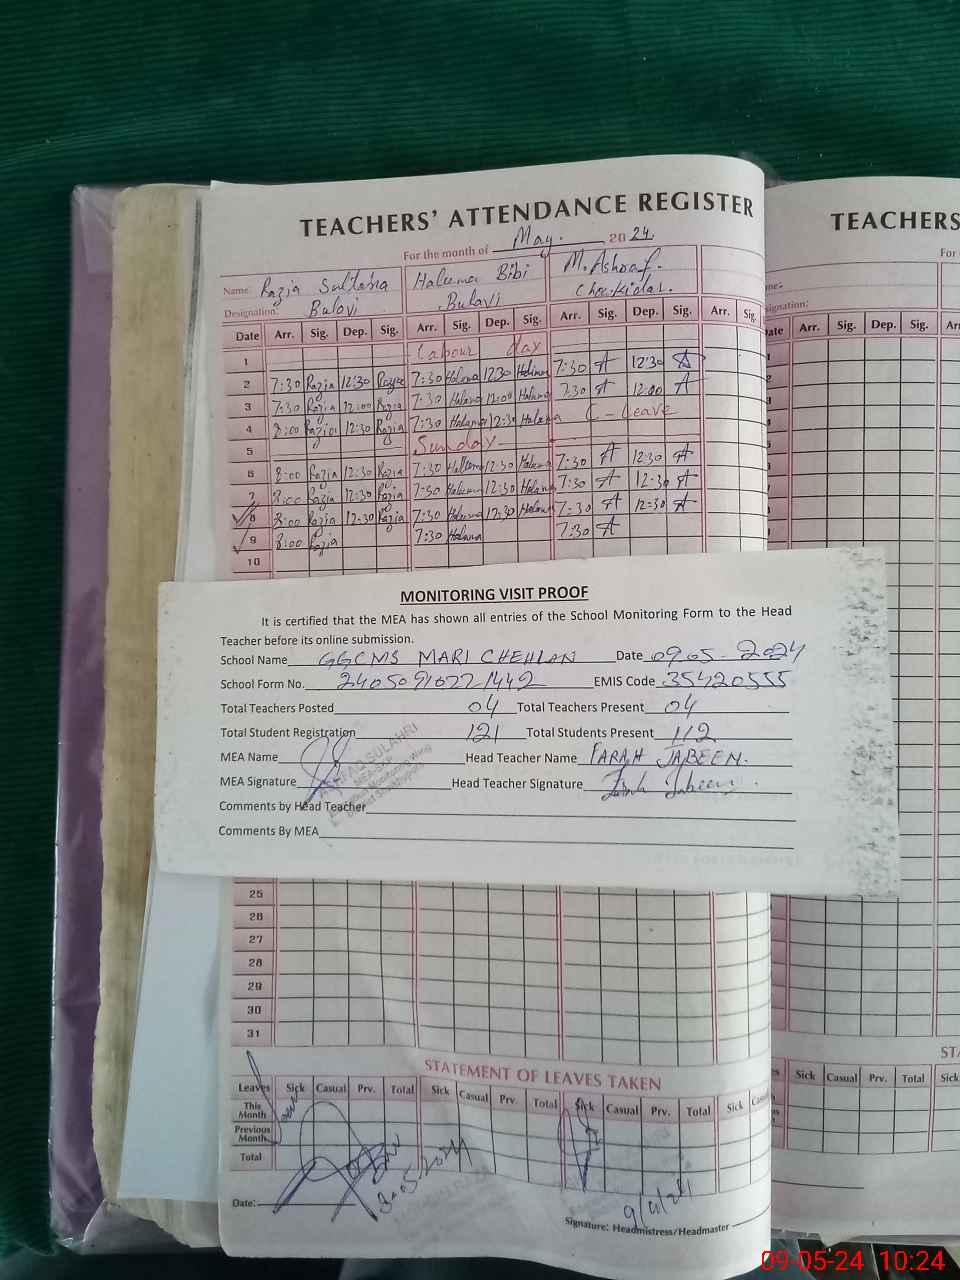 TEACHERS' ATTENDANCE REGISTER
TEACHERS
For the month of May. 2024
Name: Razia Sultana Haleema Bibi M. Ashraf.
Designation: Bulavi Bulavi Chowkidar.
Date Arr. Sig. Dep. Sig. Arr. Sig. Dep. Sig. Arr. Sig. Dep. Sig. Arr. Sig.
ate Arr. Sig. Dep. Sig.
1 Labour day
2 7:30 Razia 12:30 Razia 7:30 Halima 12:30 Halima 7:30 A 12:30 A
3 7:30 Razia 12:00 Razia 7:30 Halima 12:00 Halima 7:30 A 12:00 A
4 8:00 Razia 12:30 Razia 7:30 Halima 12:30 Halima C-Leave
5 Sunday
6 8:00 Razia 12:30 Razia 7:30 Halima 12:30 Halima 7:30 A 12:30 A
7 8:00 Razia 12:30 Razia 7:30 Halima 12:30 Halima 7:30 A 12:30 A
8 8:00 Razia 12:30 Razia 7:30 Halima 12:30 Halima 7:30 A 12:30 A
9 8:00 Razia 7:30 Halima 7:30 A
10
MONITORING VISIT PROOF
It is certified that the MEA has shown all entries of the School Monitoring Form to the Head
Teacher before its online submission.
School Name GGCMS MARI CHEHLAN Date 09-05-2024
School Form No. 240509102271442 EMIS Code 35420555
Total Teachers Posted 04 Total Teachers Present 04
Total Student Registration 121 Total Students Present 112
MEA Name Head Teacher Name FARAH JABEEN.
MEA Signature Head Teacher Signature Farah Jabeen
Comments by Head Teacher
Comments By MEA
25
26
27
28
29
30
31
STATEMENT OF LEAVES TAKEN
STA
Leaves Sick Casual Prv. Total Sick Casual Prv. Total Sick Casual Prv. Total Sick
Sick Casual Prv. Total Sick
This Month
Previous Month
Total
Date:
Signature: Headmistress/Headmaster
09-05-24 10:24